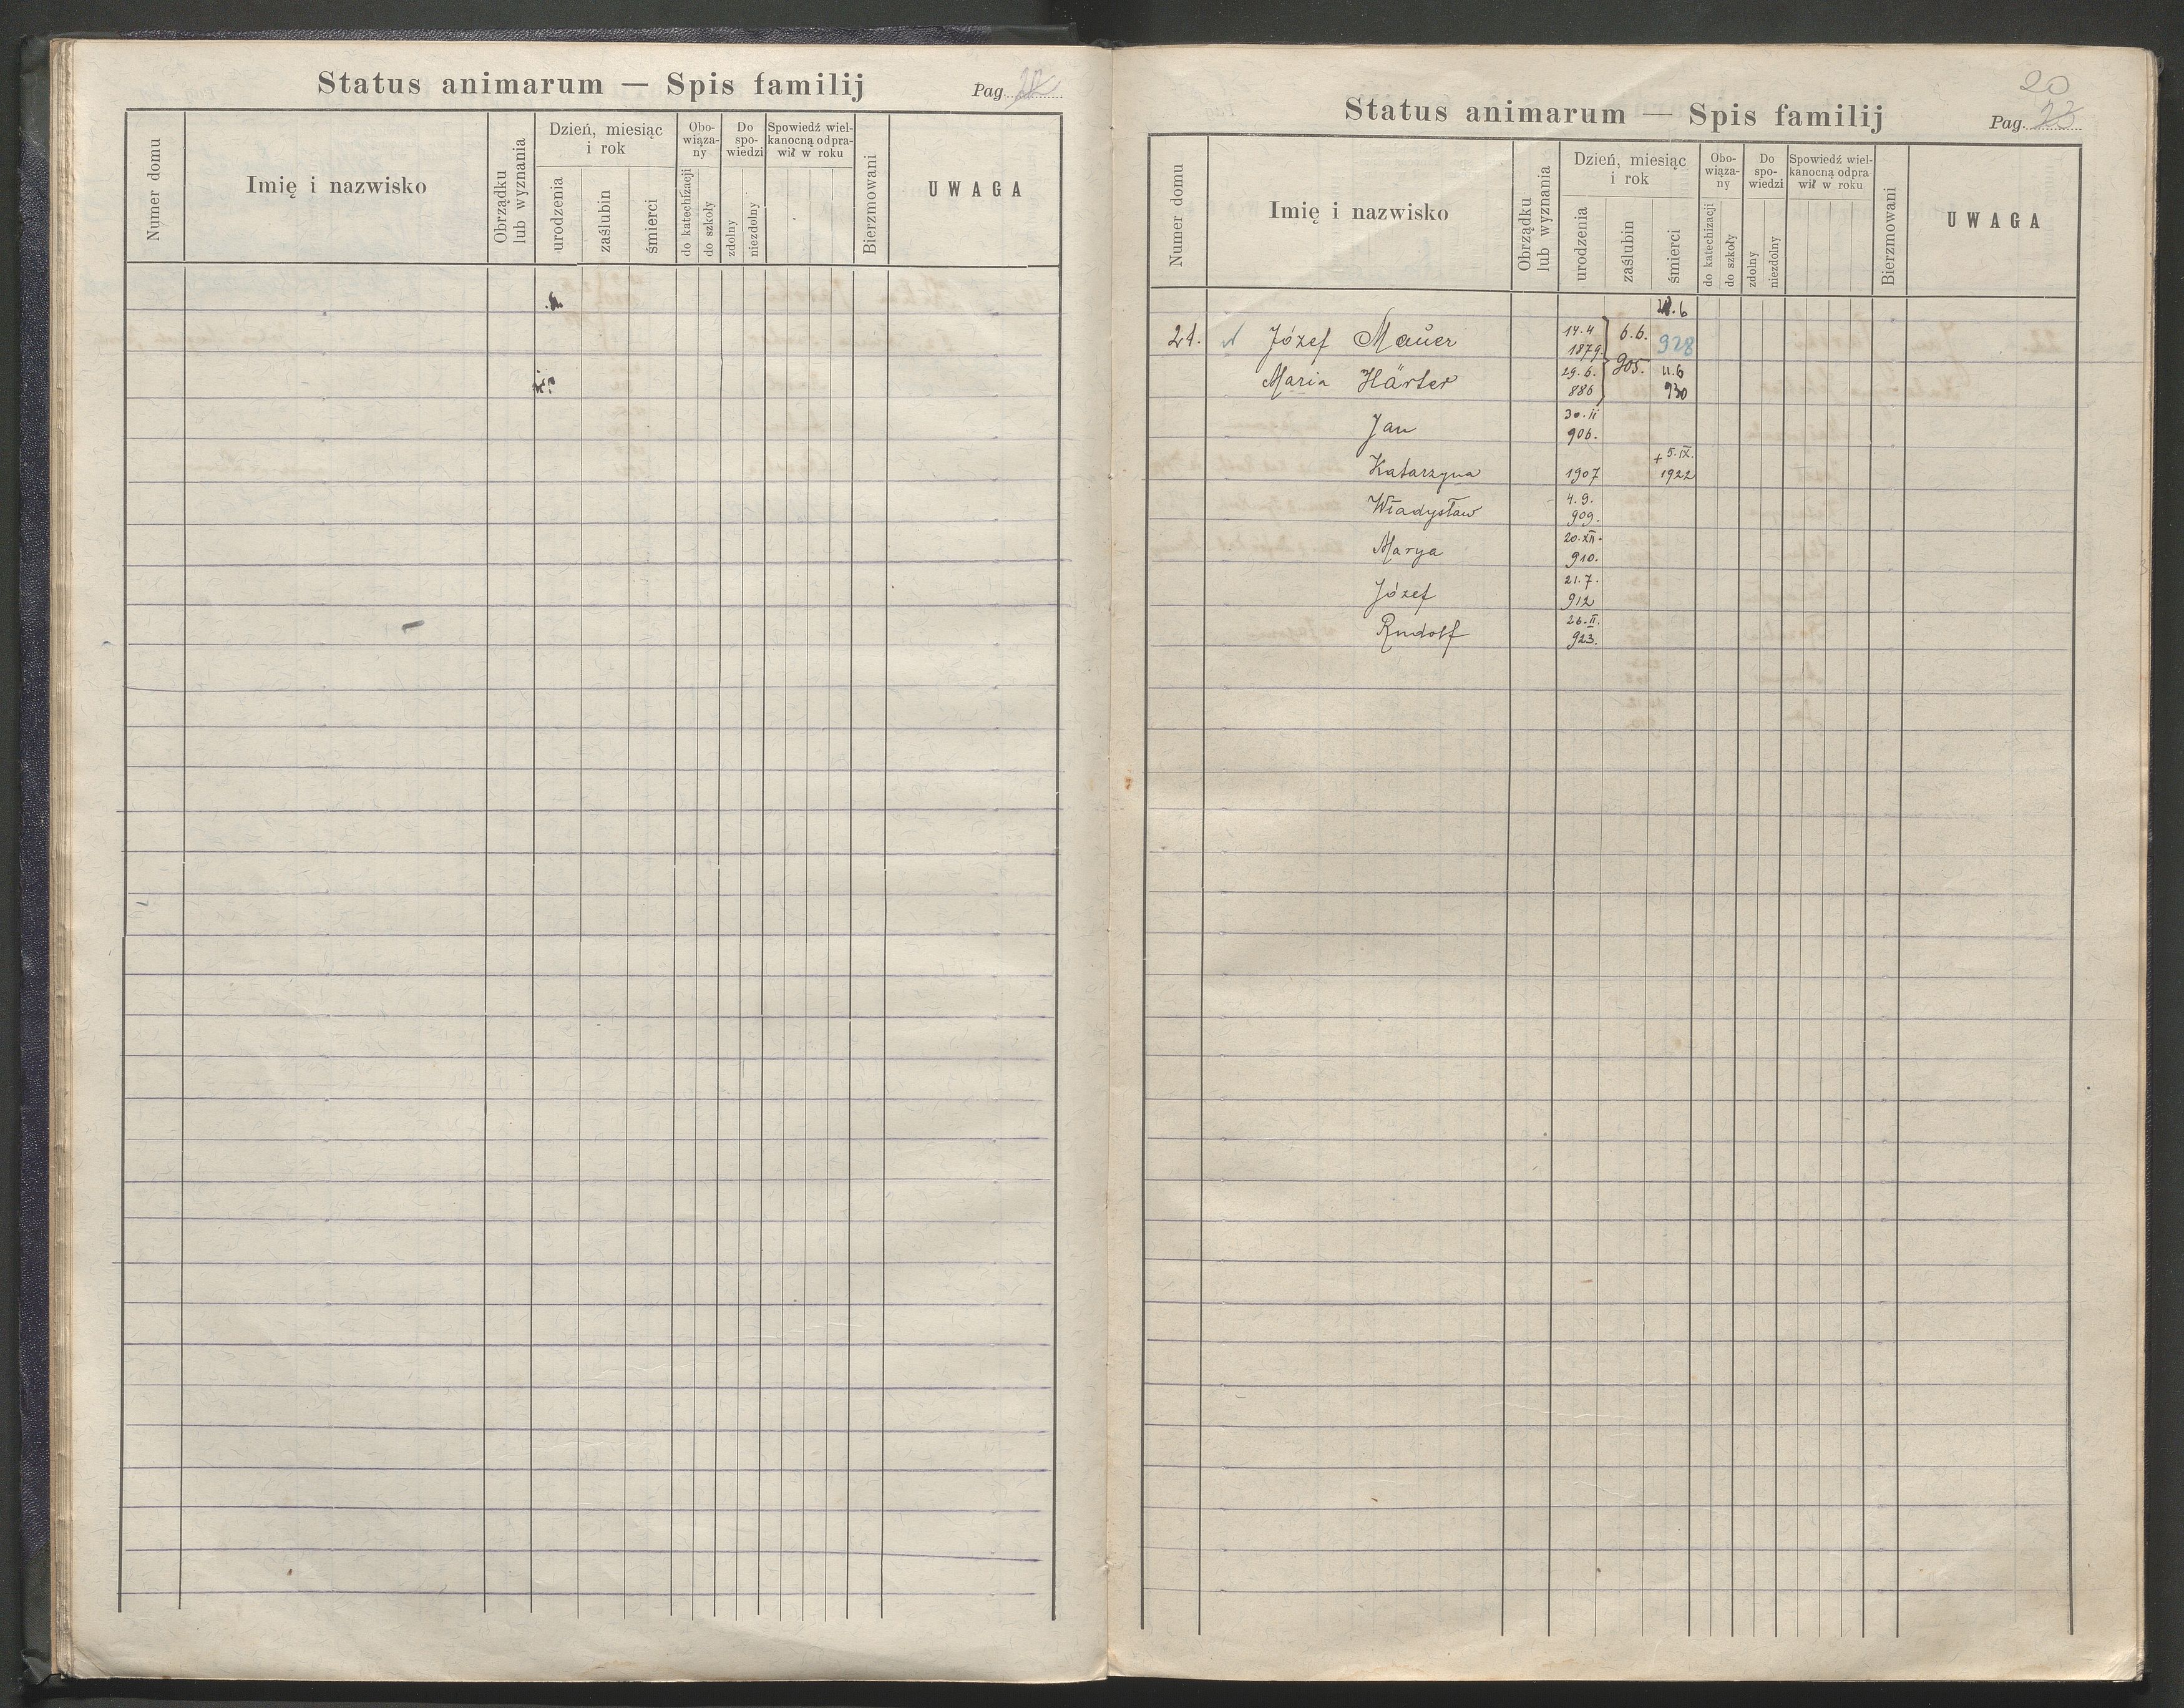 Status animarum — Spis familij
Pag.
Numer domu
Imię i nazwisko
Obrządku lub wyznania
Dzień, miesiąc i rok
urodzenia
zaślubin
śmierci
Obo-wiąza-ny
do katechizacji
do szkoły
Do spo-wiedzi
zdolny
niezdolny
Spowiedź wiel-kanocną odpra-wił w roku
Bierzmowani
UWAGA
20
Status animarum — Spis familij
Pag. 23
Numer domu
Imię i nazwisko
Obrządku lub wyznania
Dzień, miesiąc i rok
urodzenia
zaślubin
śmierci
Obo-wiąza-ny
do katechizacji
do szkoły
Do spo-wiedzi
zdolny
niezdolny
Spowiedź wiel-kanocną odpra wił w roku
Bierzmowani
UWAGA
21. Józef Mauer 14.4 1879 6.6. 905. 928
Maria Härter 29.6. 886 11.6 930
Jan 30.II 906.
Katarzyna 1907 + 5.IX. 1922
Władysław 4.9. 909.
Marya 20.XII. 910.
Józef 21.7. 912
Rudolf 26.II. 923.